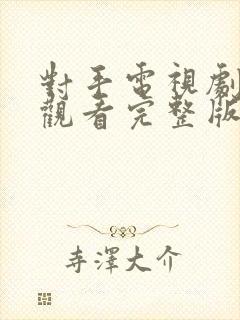 對手電視劇
觀看完整版
寺澤大介